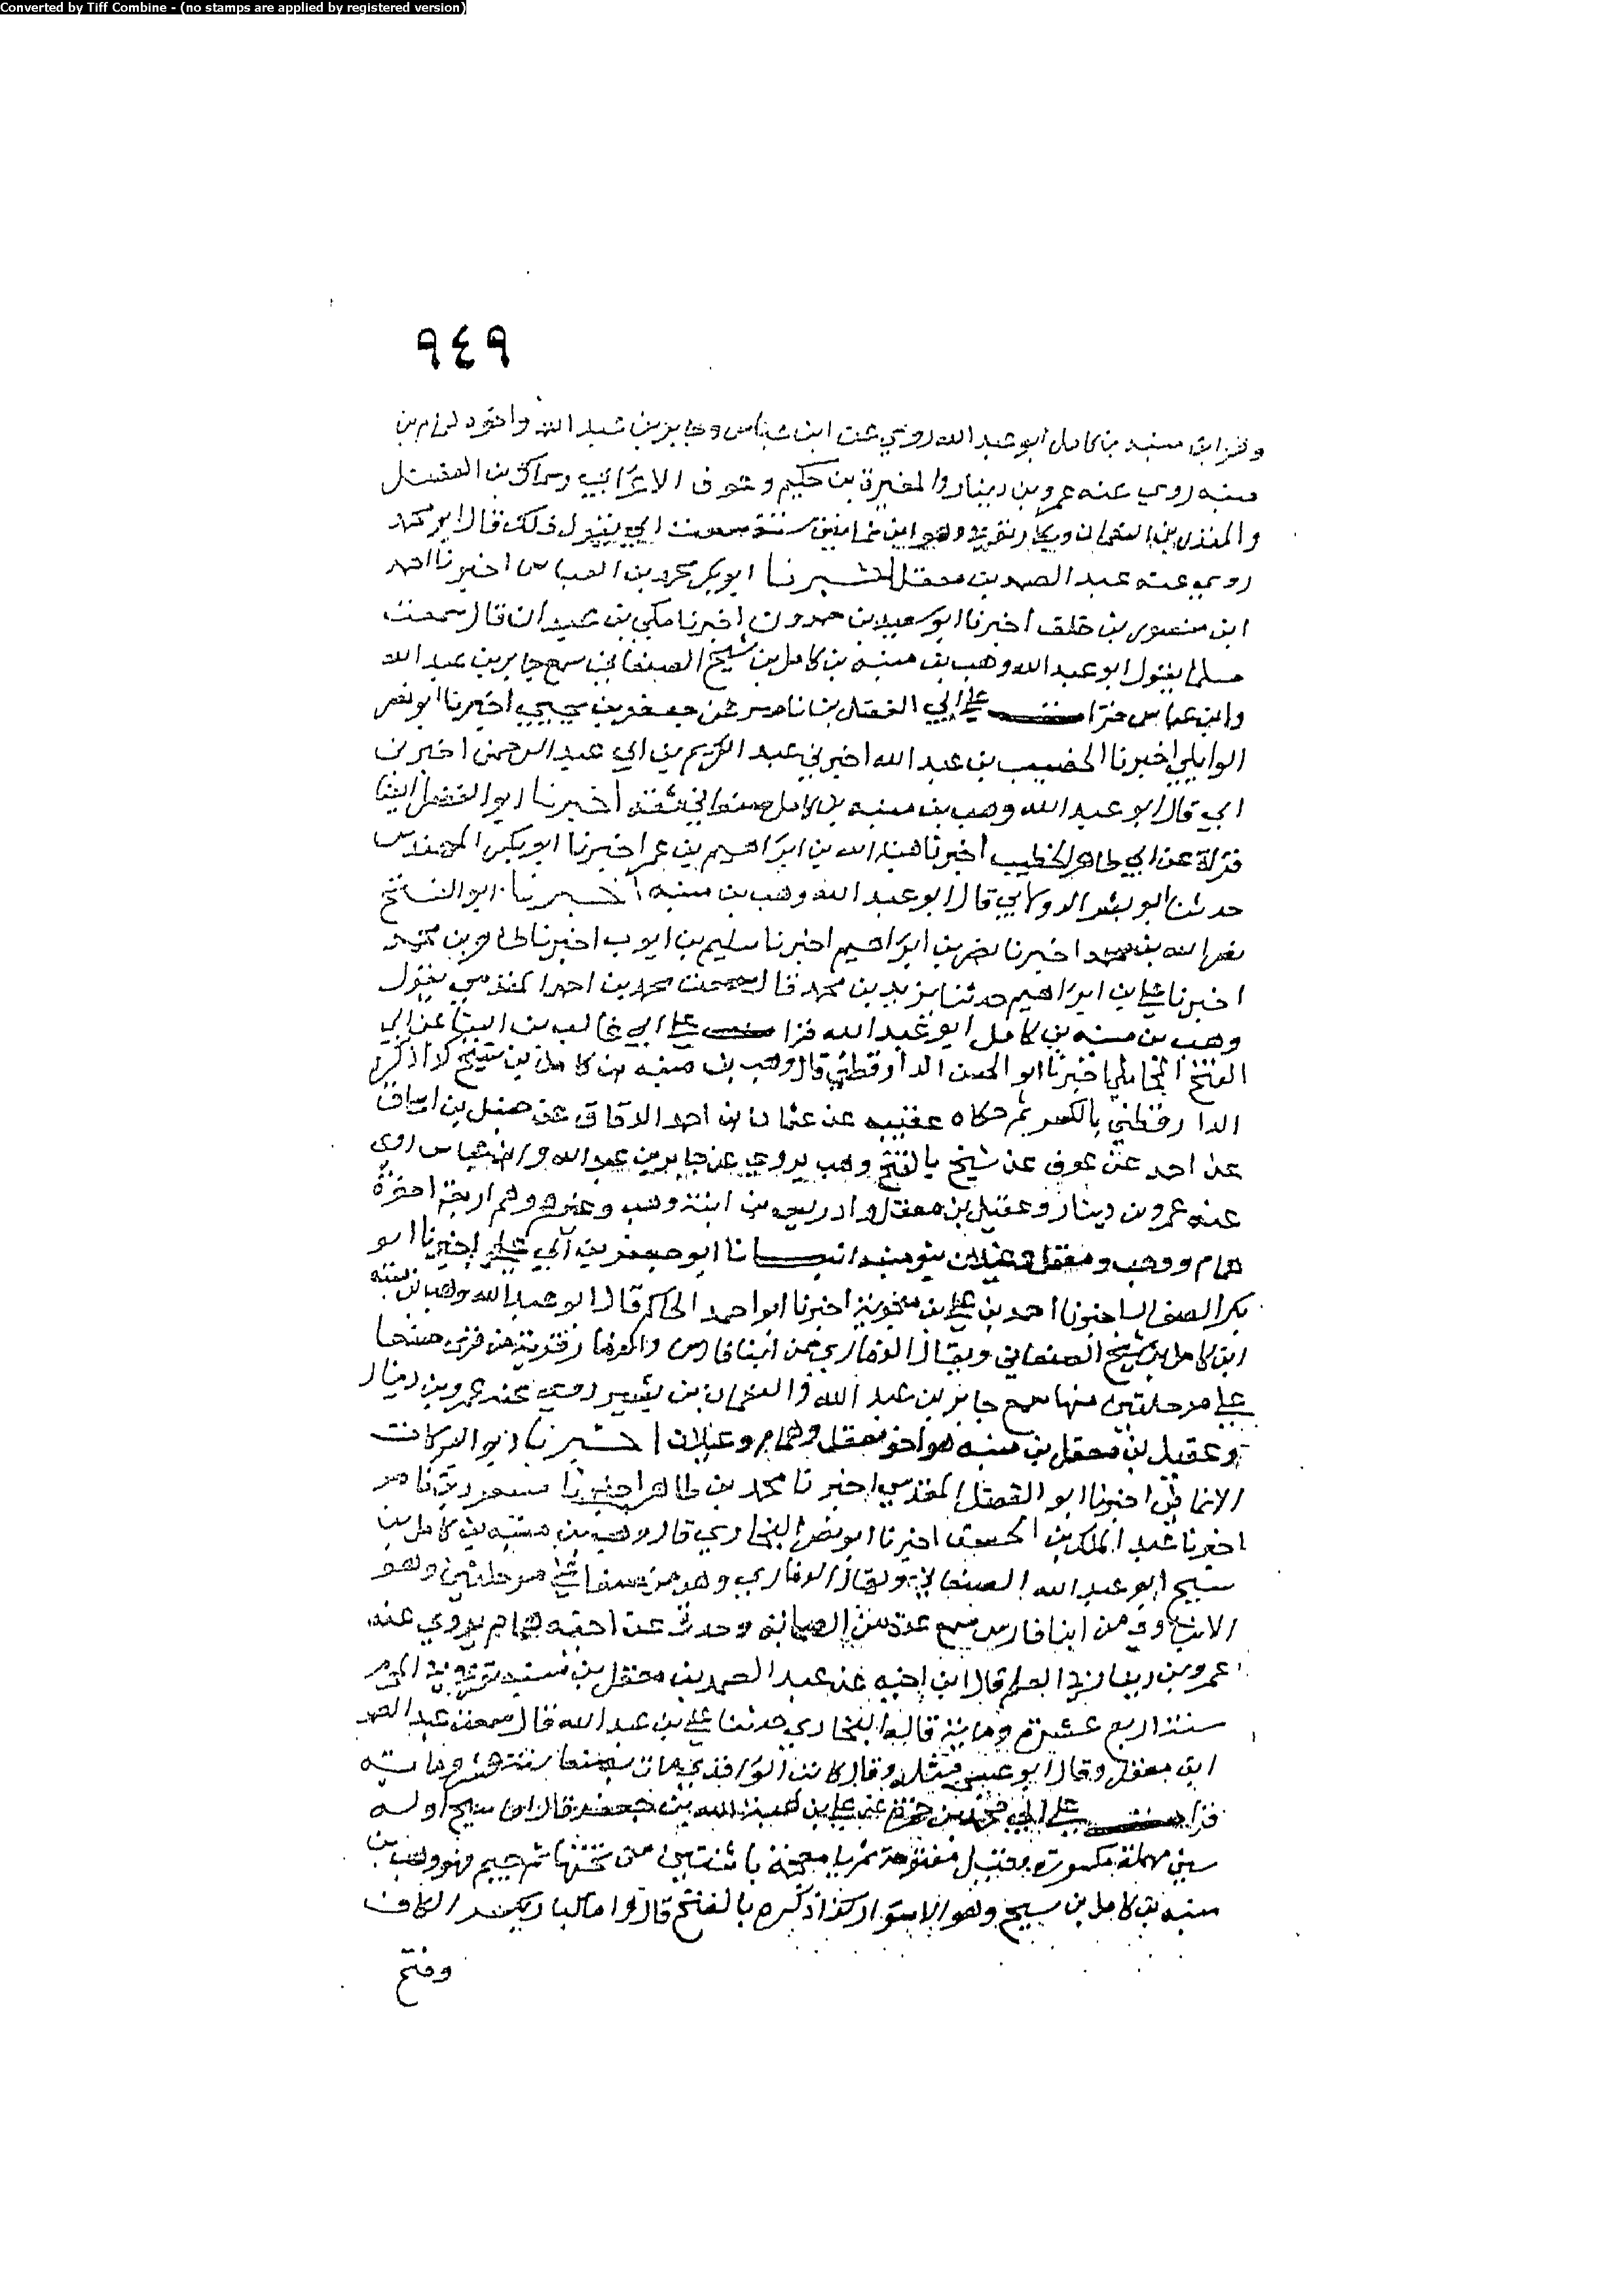 Converted by Tiff Combine - (no stamps are applied by registered version)
٩٤٩
وهب ابن منبه بن كامل ابو عبد الله روي عن ابن عباس وجابر بن عبد الله واخوه همام بن
منبه روي عنه عمرو بن دينار والمغيرة بن حكيم وعوف الاعرابي وسماك بن الفضل
والمنذر بن النعمان وبكار وهو ابن ثمانين سنة سمعت ابي يقول ذلك قال ابو محمد
روي عنه عبد الصمد بن معقل اخبرنا ابو بكر محمد بن العباس اخبرنا احمد
ابن منصور بن خلف اخبرنا ابو سعيد بن حمدون اخبرنا مكي بن عبدان قال سمعت
مسلما يقول ابو عبد الله وهب بن منبه بن كامل بن سيج الصنعاني سمع جابر بن عبد الله
وابن عباس قرات علي ابي الفضل بن ناصر عن جعفر بن يحيي اخبرنا ابو نصر
الوايلي اخبرنا الخصيب بن عبد الله اخبرني عبد الكريم بن ابي عبد الرحمن اخبرني
ابي قال ابو عبد الله وهب بن منبه بن كامل صنعاني ثقة اخبرنا ابو الفضل ايضا
قراة عن ابي طاهر الخطيب اخبرنا هبة الله بن ابراهيم بن عمر اخبرنا ابو بكر المهندس
حدثنا ابو بشر الدولابي قال ابو عبد الله وهب بن منبه اخبرنا ابو الفتح
نصر الله بن محمد اخبرنا نصر بن ابراهيم اخبرنا سليم بن ايوب اخبرنا طاهر بن محمد
اخبرنا علي بن ابراهيم حدثنا يزيد بن محمد قال سمعت محمد بن احمد المقدمي يقول
وهب بن منبه بن كامل ابو عبد الله قرات علي ابي غالب بن البنا عن ابي
الفتح المحاملي اخبرنا ابو الحسن الدارقطني قال وهب بن منبه بن كامل بن سيج كذا ذكره
الدارقطني بالكسر ثم حكاه عقيبه عن عثمان بن احمد الدقاق عن حنبل بن اسحاق
عن احمد عن عوف عن سيج بالفتح وهب يروي عن جابر بن عبد الله وابن عباس روي
عنه عمرو بن دينار وعقيل بن معقل وادريس بن ابنة وهب وغيرهم وهم اربعة اخوة
همام ووهب ومعقل وغيلان بنو منبه انبانا ابو جعفر بن ابي علي اخبرنا ابو
بكر الصفار اخبرنا احمد بن علي بن منجويه اخبرنا ابو احمد الحاكم قال ابو عبد الله وهب بن منبه
ابن كامل بن سيج الصنعاني ويقال الذماري من ابنا فارس وذمار قرية من قري صنعا
علي مرحلتين منها سمع جابر بن عبد الله والنعمان بن بشير روي عنه عمرو بن دينار
وعقيل بن معقل بن منبه هو اخو معقل وهمام وغيلان اخبرنا ابو البركات
الانماطي اخبرنا ابو الفضل المقدسي اخبرنا محمد بن طاهر اخبرنا مسعود بن ناصر
اخبرنا عبد الملك بن الحسن اخبرنا ابو نصر البخاري قال وهب بن منبه بن كامل بن
سيج ابو عبد الله الصنعاني ويقال الذماري وهو من صنعا علي مرحلتين وهو
الابناوي من ابنا فارس سمع عدة من الصحابة وحدث عن اخيه همام يروي عنه
عمرو بن دينار في العلم قال ابن اخيه عن عبد الصمد بن معقل بن منبه توفي في المحرم
سنة اربع عشرة ومائة قال البخاري حدثنا علي بن عبد الله قال سمعت عبد الصمد
ابن معقل وقال ابو عيسي مثله وقال كاتب الواقدي مات بصنعا سنة عشر ومائة
قرات علي ابي محمد بن حمزة عن علي بن هبة الله بن جعفر قال اما سيج اوله
سين مهملة مكسورة وقيل مفتوحة ثم يا معجمة باثنتين من تحتها ثم جيم فهو وهب بن
منبه بن كامل بن سيج وهو الاسوار كذا ذكره بالفتح قالوا ما كبار بكسر الكاف
وفتح